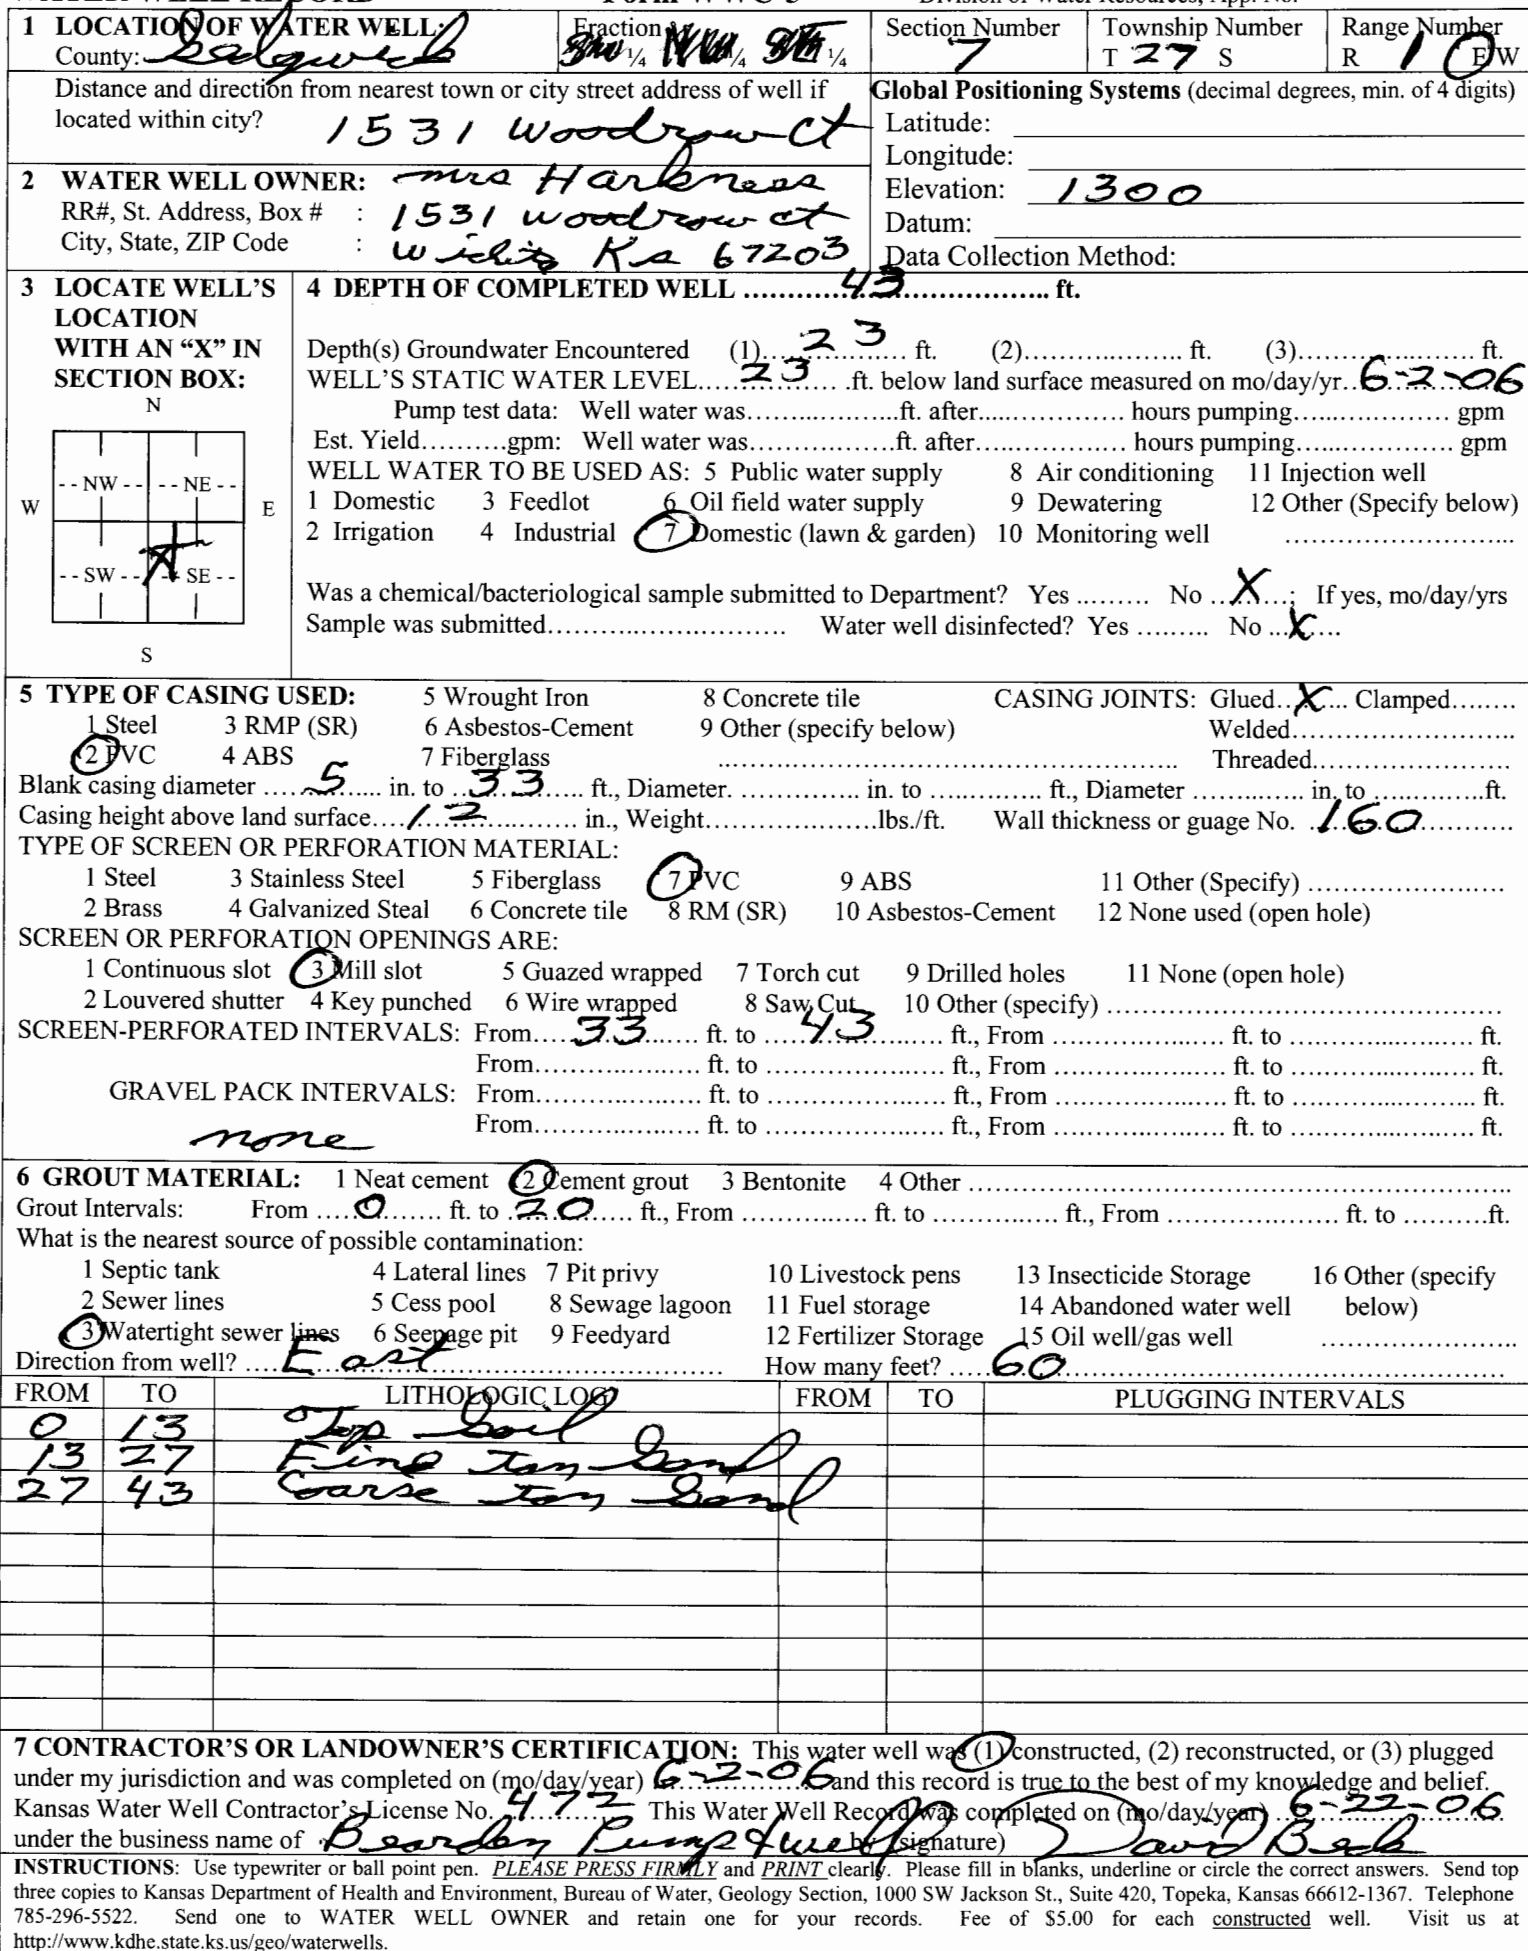 1 LOCATION OF WATER WELL: Fraction Section Number Township Number Range Number
County: Sedgwick ¼ NW ¼ SE ¼ 7 T 27 S R 1 E W
Distance and direction from nearest town or city street address of well if
located within city? 1531 Woodrow Ct
Global Positioning Systems (decimal degrees, min. of 4 digits)
Latitude:
Longitude:
Elevation: 1300
Datum:
Data Collection Method:
2 WATER WELL OWNER: Mrs Harkness
RR#, St. Address, Box # : 1531 Woodrow ct
City, State, ZIP Code : Wichita Ks 67203
3 LOCATE WELL'S
LOCATION
WITH AN “X” IN
SECTION BOX:
N
NW NE
W E
X
SW SE
S
4 DEPTH OF COMPLETED WELL 43 ft.
Depth(s) Groundwater Encountered (1) 23 ft. (2) ft. (3) ft.
WELL'S STATIC WATER LEVEL 23 ft. below land surface measured on mo/day/yr 6-2-06
Pump test data: Well water was ft. after hours pumping gpm
Est. Yield gpm: Well water was ft. after hours pumping gpm
WELL WATER TO BE USED AS: 5 Public water supply 8 Air conditioning 11 Injection well
1 Domestic 3 Feedlot 6 Oil field water supply 9 Dewatering 12 Other (Specify below)
2 Irrigation 4 Industrial 7 Domestic (lawn & garden) 10 Monitoring well
Was a chemical/bacteriological sample submitted to Department? Yes No X; If yes, mo/day/yrs
Sample was submitted Water well disinfected? Yes No X
5 TYPE OF CASING USED: 5 Wrought Iron 8 Concrete tile CASING JOINTS: Glued X Clamped
1 Steel 3 RMP (SR) 6 Asbestos-Cement 9 Other (specify below) Welded
2 PVC 4 ABS 7 Fiberglass Threaded
Blank casing diameter 5 in. to 33 ft., Diameter. in. to ft., Diameter in. to ft.
Casing height above land surface 12 in., Weight lbs./ft. Wall thickness or guage No. 160
TYPE OF SCREEN OR PERFORATION MATERIAL:
1 Steel 3 Stainless Steel 5 Fiberglass 7 PVC 9 ABS 11 Other (Specify)
2 Brass 4 Galvanized Steal 6 Concrete tile 8 RM (SR) 10 Asbestos-Cement 12 None used (open hole)
SCREEN OR PERFORATION OPENINGS ARE:
1 Continuous slot 3 Mill slot 5 Guazed wrapped 7 Torch cut 9 Drilled holes 11 None (open hole)
2 Louvered shutter 4 Key punched 6 Wire wrapped 8 Saw Cut 10 Other (specify)
SCREEN-PERFORATED INTERVALS: From 33 ft. to 43 ft., From ft. to ft.
From ft. to ft., From ft. to ft.
GRAVEL PACK INTERVALS: From ft. to ft., From ft. to ft.
none From ft. to ft., From ft. to ft.
6 GROUT MATERIAL: 1 Neat cement 2 Cement grout 3 Bentonite 4 Other
Grout Intervals: From 0 ft. to 20 ft., From ft. to ft., From ft. to ft.
What is the nearest source of possible contamination:
1 Septic tank 4 Lateral lines 7 Pit privy 10 Livestock pens 13 Insecticide Storage 16 Other (specify
2 Sewer lines 5 Cess pool 8 Sewage lagoon 11 Fuel storage 14 Abandoned water well below)
3 Watertight sewer lines 6 Seepage pit 9 Feedyard 12 Fertilizer Storage 15 Oil well/gas well
Direction from well? East How many feet? 60
FROM TO LITHOLOGIC LOG FROM TO PLUGGING INTERVALS
0 13 Top Soil
13 27 Fine tan Sand
27 43 Coarse tan Sand
7 CONTRACTOR'S OR LANDOWNER'S CERTIFICATION: This water well was (1) constructed, (2) reconstructed, or (3) plugged
under my jurisdiction and was completed on (mo/day/year) 6-2-06 and this record is true to the best of my knowledge and belief.
Kansas Water Well Contractor's License No. 472 This Water Well Record was completed on (mo/day/year) 6-22-06
under the business name of Bearden Pump & well by (signature) David Beck
INSTRUCTIONS: Use typewriter or ball point pen. PLEASE PRESS FIRMLY and PRINT clearly. Please fill in blanks, underline or circle the correct answers. Send top
three copies to Kansas Department of Health and Environment, Bureau of Water, Geology Section, 1000 SW Jackson St., Suite 420, Topeka, Kansas 66612-1367. Telephone
785-296-5522. Send one to WATER WELL OWNER and retain one for your records. Fee of $5.00 for each constructed well. Visit us at
http://www.kdhe.state.ks.us/geo/waterwells.